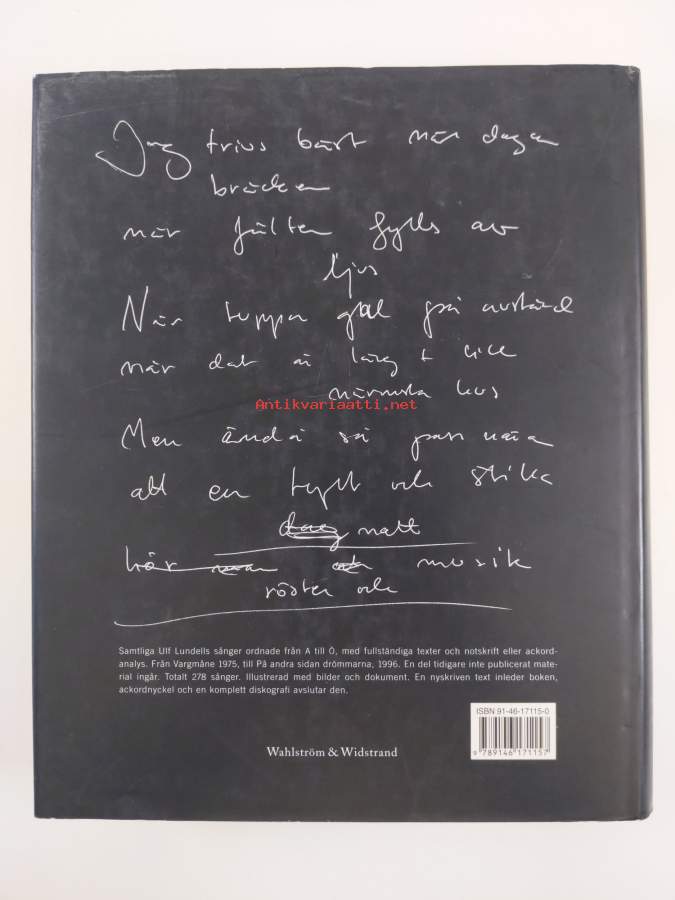 Jag trivs bäst när dagen
bräcker
när fälten fylls av
ljus
När tuppar gal på avstånd
när det är långt t
närmsta hus
Antikvariaatti.net
Men ändå så pass nära
att en tyst och stilla
natt
hör
musik
röster och
Samtliga Ulf Lundells sånger ordnade från A till Ö, med fullständiga texter och notskrift eller ackord-
analys. Från Vargmåne 1975, till På andra sidan drömmarna, 1996. En del tidigare inte publicerat mate-
rial ingår. Totalt 278 sånger. Illustrerad med bilder och dokument. En nyskriven text inleder boken,
ackordnyckel och en komplett diskografi avslutar den.
ISBN 91-46-17115-0
9 789146 171157
Wahlström & Widstrand